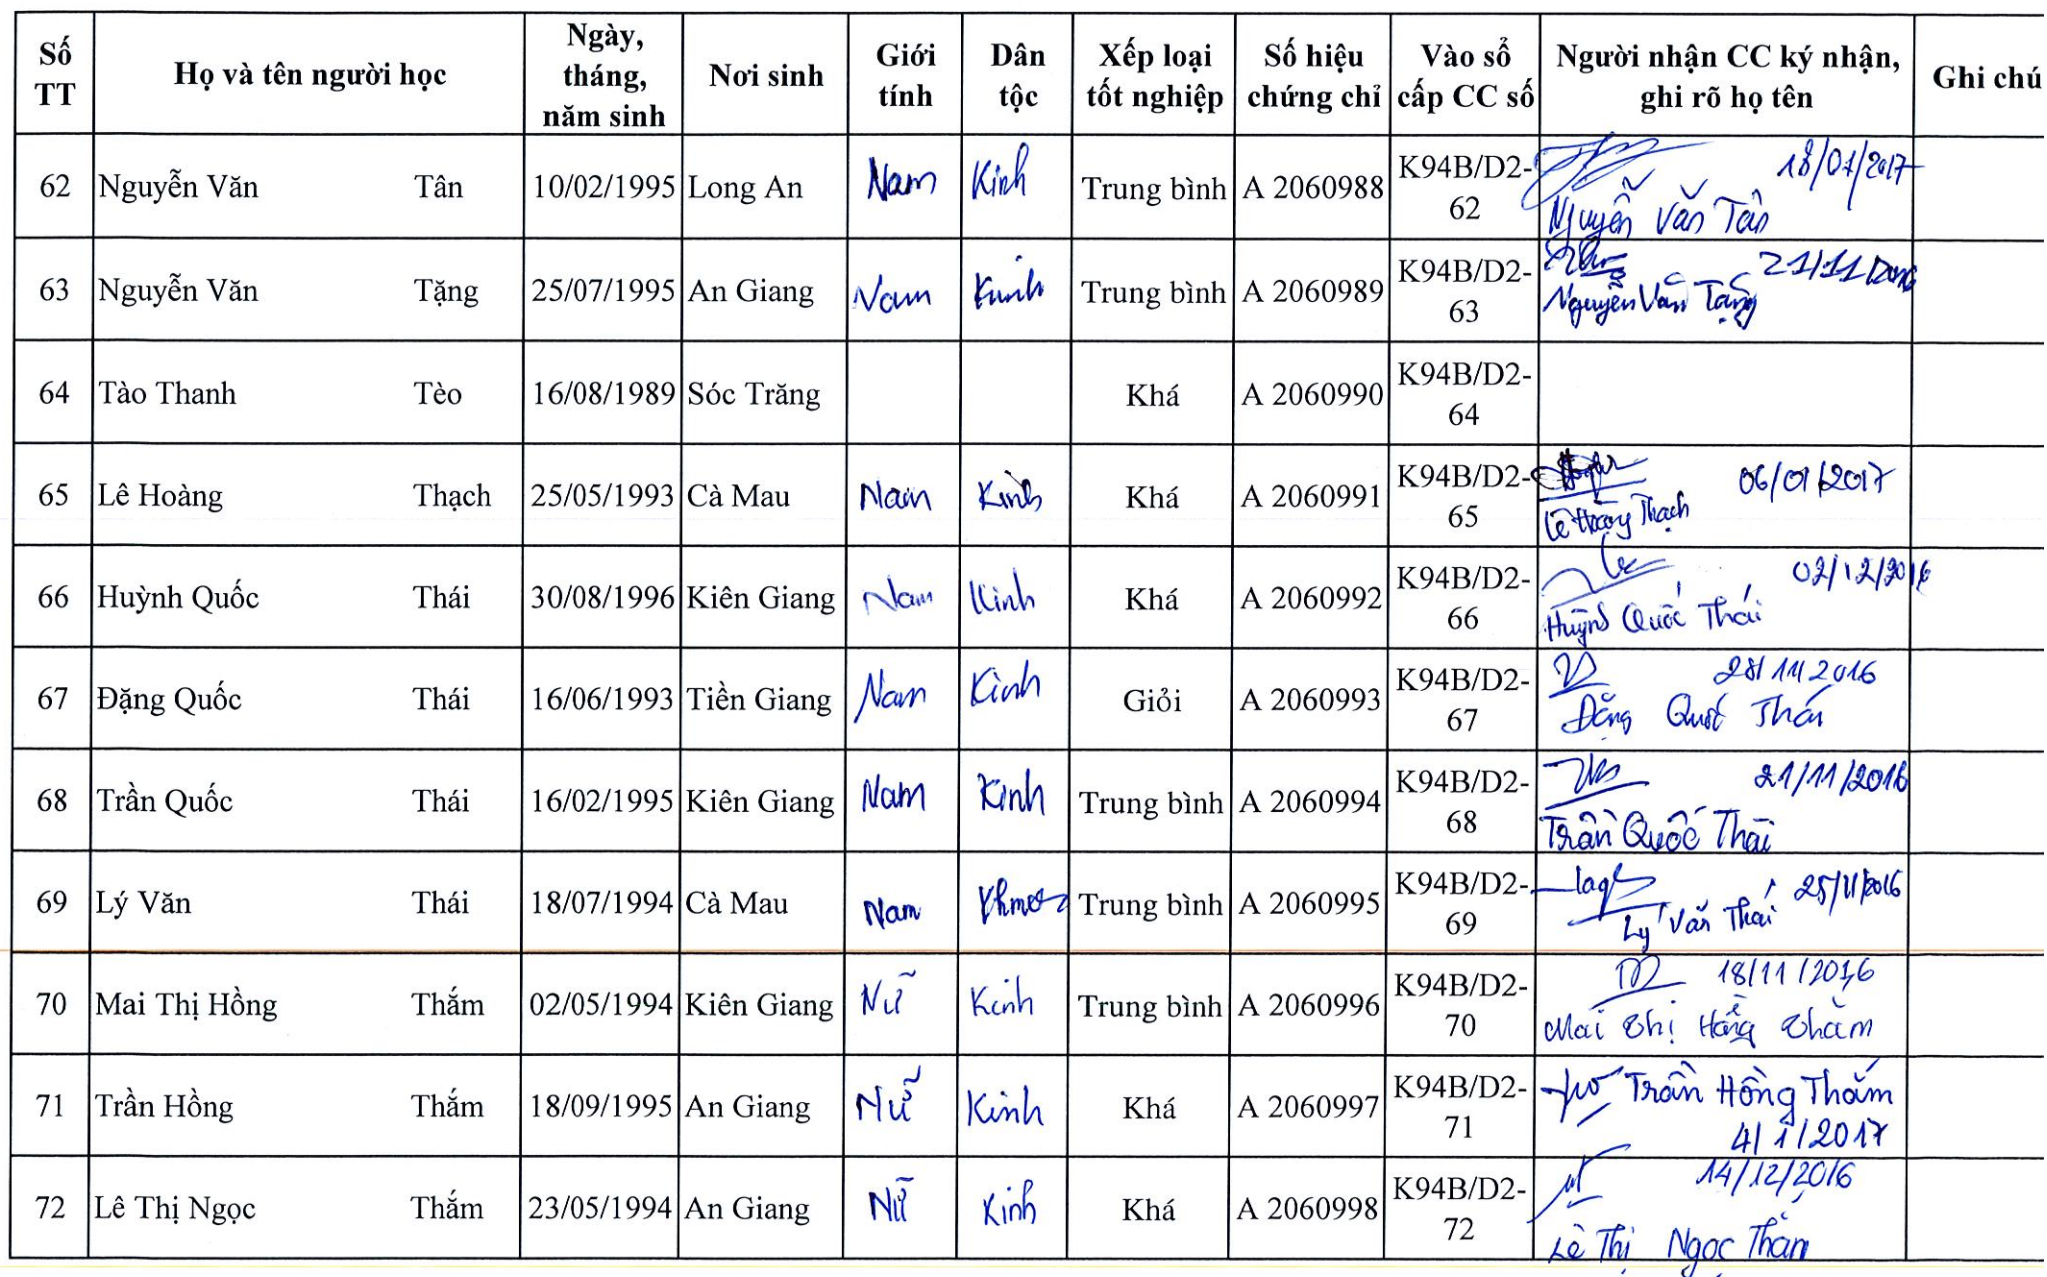 Số TT | Họ và tên người học | Ngày, tháng, năm sinh | Nơi sinh | Giới tính | Dân tộc | Xếp loại tốt nghiệp | Số hiệu chứng chỉ | Vào sổ cấp CC số | Người nhận CC ký nhận, ghi rõ họ tên | Ghi chú
62 | Nguyễn Văn Tân | 10/02/1995 | Long An | Nam | Kinh | Trung bình | A 2060988 | K94B/D2-62 | 18/01/2017 Nguyễn Văn Tân
63 | Nguyễn Văn Tặng | 25/07/1995 | An Giang | Nam | Kinh | Trung bình | A 2060989 | K94B/D2-63 | 21/11/2016 Nguyễn Văn Tặng
64 | Tào Thanh Tèo | 16/08/1989 | Sóc Trăng | Khá | A 2060990 | K94B/D2-64
65 | Lê Hoàng Thạch | 25/05/1993 | Cà Mau | Nam | Kinh | Khá | A 2060991 | K94B/D2-65 | 06/01/2017 Lê Hoàng Thạch
66 | Huỳnh Quốc Thái | 30/08/1996 | Kiên Giang | Nam | Kinh | Khá | A 2060992 | K94B/D2-66 | 02/12/2016 Huỳnh Quốc Thái
67 | Đặng Quốc Thái | 16/06/1993 | Tiền Giang | Nam | Kinh | Giỏi | A 2060993 | K94B/D2-67 | 28/11/2016 Đặng Quốc Thái
68 | Trần Quốc Thái | 16/02/1995 | Kiên Giang | Nam | Kinh | Trung bình | A 2060994 | K94B/D2-68 | 21/11/2016 Trần Quốc Thái
69 | Lý Văn Thái | 18/07/1994 | Cà Mau | Nam | Khmer | Trung bình | A 2060995 | K94B/D2-69 | 25/11/2016 Lý Văn Thái
70 | Mai Thị Hồng Thắm | 02/05/1994 | Kiên Giang | Nữ | Kinh | Trung bình | A 2060996 | K94B/D2-70 | 18/11/2016 Mai Thị Hồng Thắm
71 | Trần Hồng Thắm | 18/09/1995 | An Giang | Nữ | Kinh | Khá | A 2060997 | K94B/D2-71 | Trần Hồng Thắm 4/1/2017
72 | Lê Thị Ngọc Thắm | 23/05/1994 | An Giang | Nữ | Kinh | Khá | A 2060998 | K94B/D2-72 | 14/12/2016 Lê Thị Ngọc Thắm